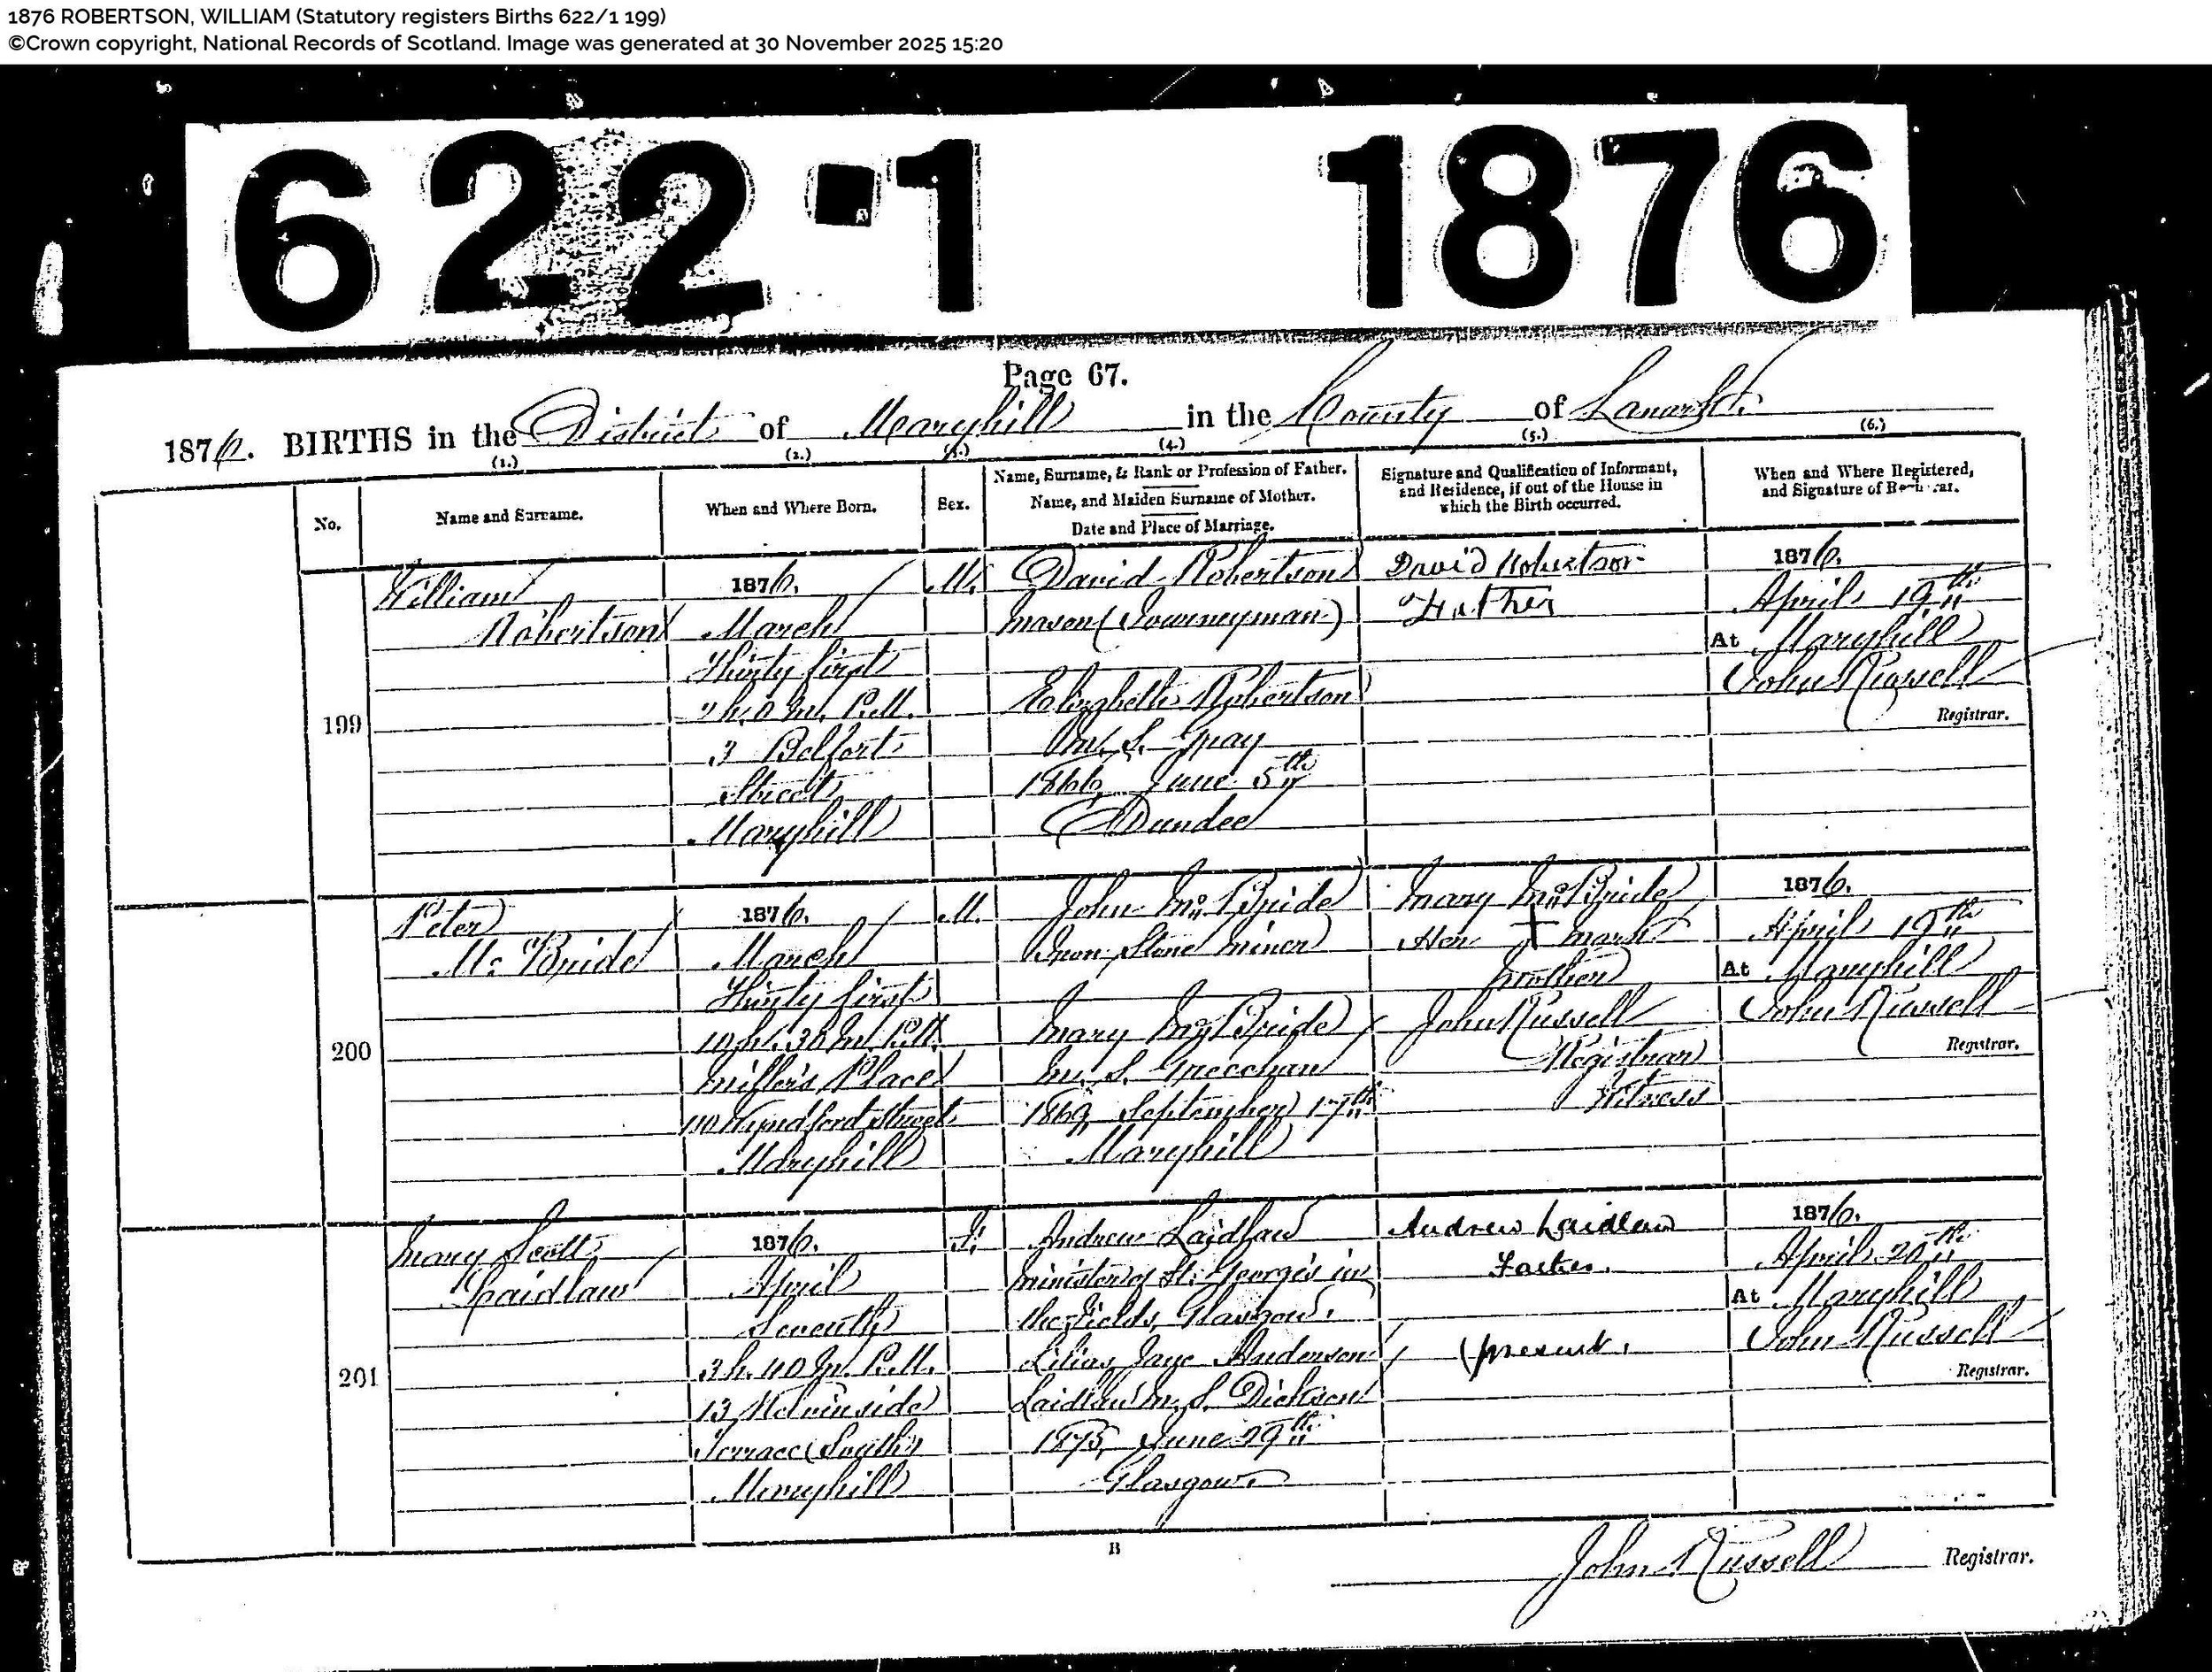 1876 ROBERTSON, WILLIAM (Statutory registers Births 622/1 199)
©Crown copyright, National Records of Scotland. Image was generated at 30 November 2025 15:20
622·1 1876
Page 67.
1876. BIRTHS in the District of Maryhill in the County of Lanark
(1.) (2.) (3.) (4.) (5.) (6.)
No.
Name and Surname.
When and Where Born.
Sex.
Name, Surname, & Rank or Profession of Father.
Name, and Maiden Surname of Mother.
Date and Place of Marriage.
Signature and Qualification of Informant,
and Residence, if out of the House in
which the Birth occurred.
When and Where Registered,
and Signature of Registrar.
199
William
Robertson
1876.
March
Thirty first
h. 0 m. P.M.
3 Belfort
Street
Maryhill
M.
David Robertson
Mason (Journeyman)
Elizabeth Robertson
M. S. Gray
1866, June 5th
Dundee
David Robertson
Father
1876.
April 19th
At Maryhill
John Russell
Registrar.
200
Peter
Mc Bride
1876.
March
Thirty first
10 h. 30 m. P.M.
Miller's Place
110 Wyndford Street
Maryhill
M.
John McBride
Iron Stone Miner
Mary McBride
M. S. Greechan
1869, September 17th
Maryhill
Mary McBride
Her + mark
Mother
John Russell
Registrar
Witness
1876.
April 19th
At Maryhill
John Russell
Registrar.
201
Mary Scott
Laidlaw
1876.
April
Seventh
3 h. 40 m. P.M.
13 Kelvinside
Terrace (South)
Maryhill
F.
Andrew Laidlaw
Minister of St. George's in
the Fields, Glasgow.
Lilias Jane Anderson
Laidlaw M. S. Dickson
1875, June 29th
Glasgow
Andrew Laidlaw
Father.
(present.
1876.
April 20th
At Maryhill
John Russell
Registrar.
B
John Russell Registrar.